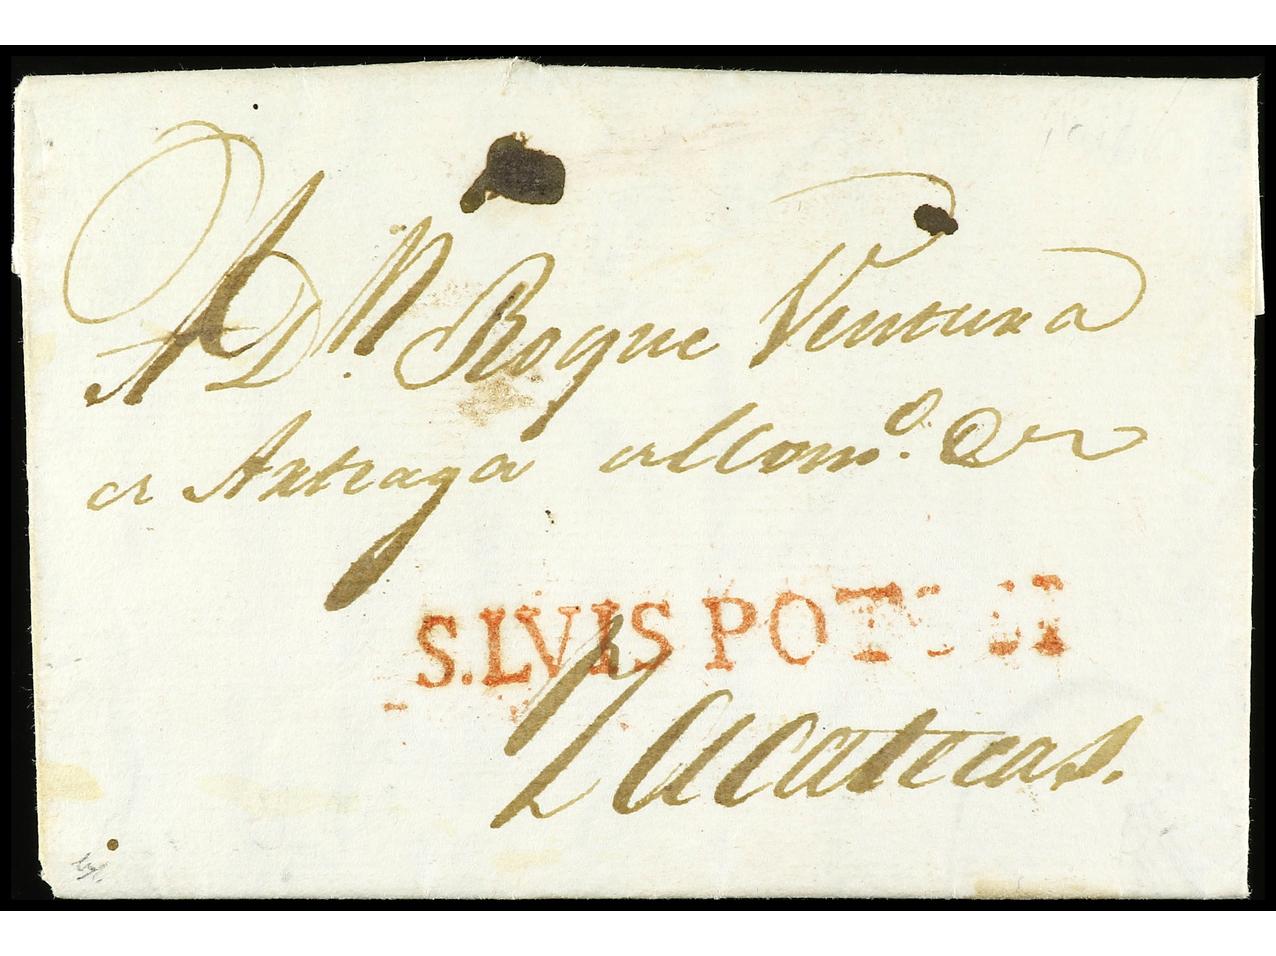 A Dn. Roque Ventura
de Arteaga del Como. de
S.LVIS POTOSI
Zacatecas.